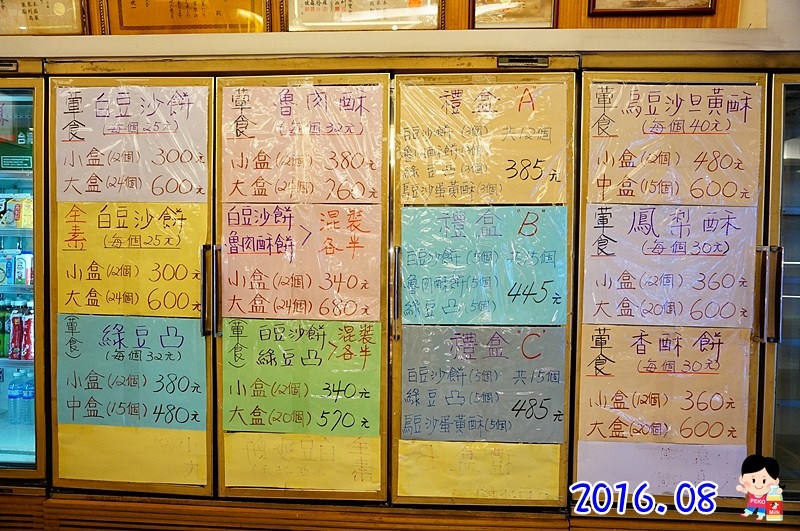 葷食 白豆沙餅
(每個25元)
小盒(12個) 300元
大盒(24個) 600元
全素 白豆沙餅
(每個25元)
小盒(12個) 300元
大盒(24個) 600元
(葷食) 綠豆凸
(每個32元)
小盒(12個) 380元
中盒(15個) 480元
葷食 魯肉酥
(每個32元)
小盒(12個) 380元
大盒(24個) 760元
白豆沙餅
魯肉酥餅 > 混裝各半
小盒(12個) 340元
大盒(24個) 680元
(葷食) 白豆沙餅
綠豆凸 > 混裝各半
小盒(12個) 340元
大盒(20個) 570元
禮盒"A"
白豆沙餅(3個) 共12個
魯肉酥餅(3個)
綠豆凸(3個) 385元
烏豆沙蛋黃酥(3個)
禮盒"B"
白豆沙餅(5個) 共15個
魯肉酥餅(5個)
綠豆凸(5個) 445元
禮盒"C"
白豆沙餅(5個) 共15個
綠豆凸(5個) 485元
烏豆沙蛋黃酥(5個)
葷食 烏豆沙旦黃酥
(每個40元)
小盒(12個) 480元
中盒(15個) 600元
葷食 鳳梨酥
(每個30元)
小盒(12個) 360元
大盒(20個) 600元
葷食 香酥餅
(每個30元)
小盒(12個) 360元
大盒(20個) 600元
2016.08
PEKO
Milk